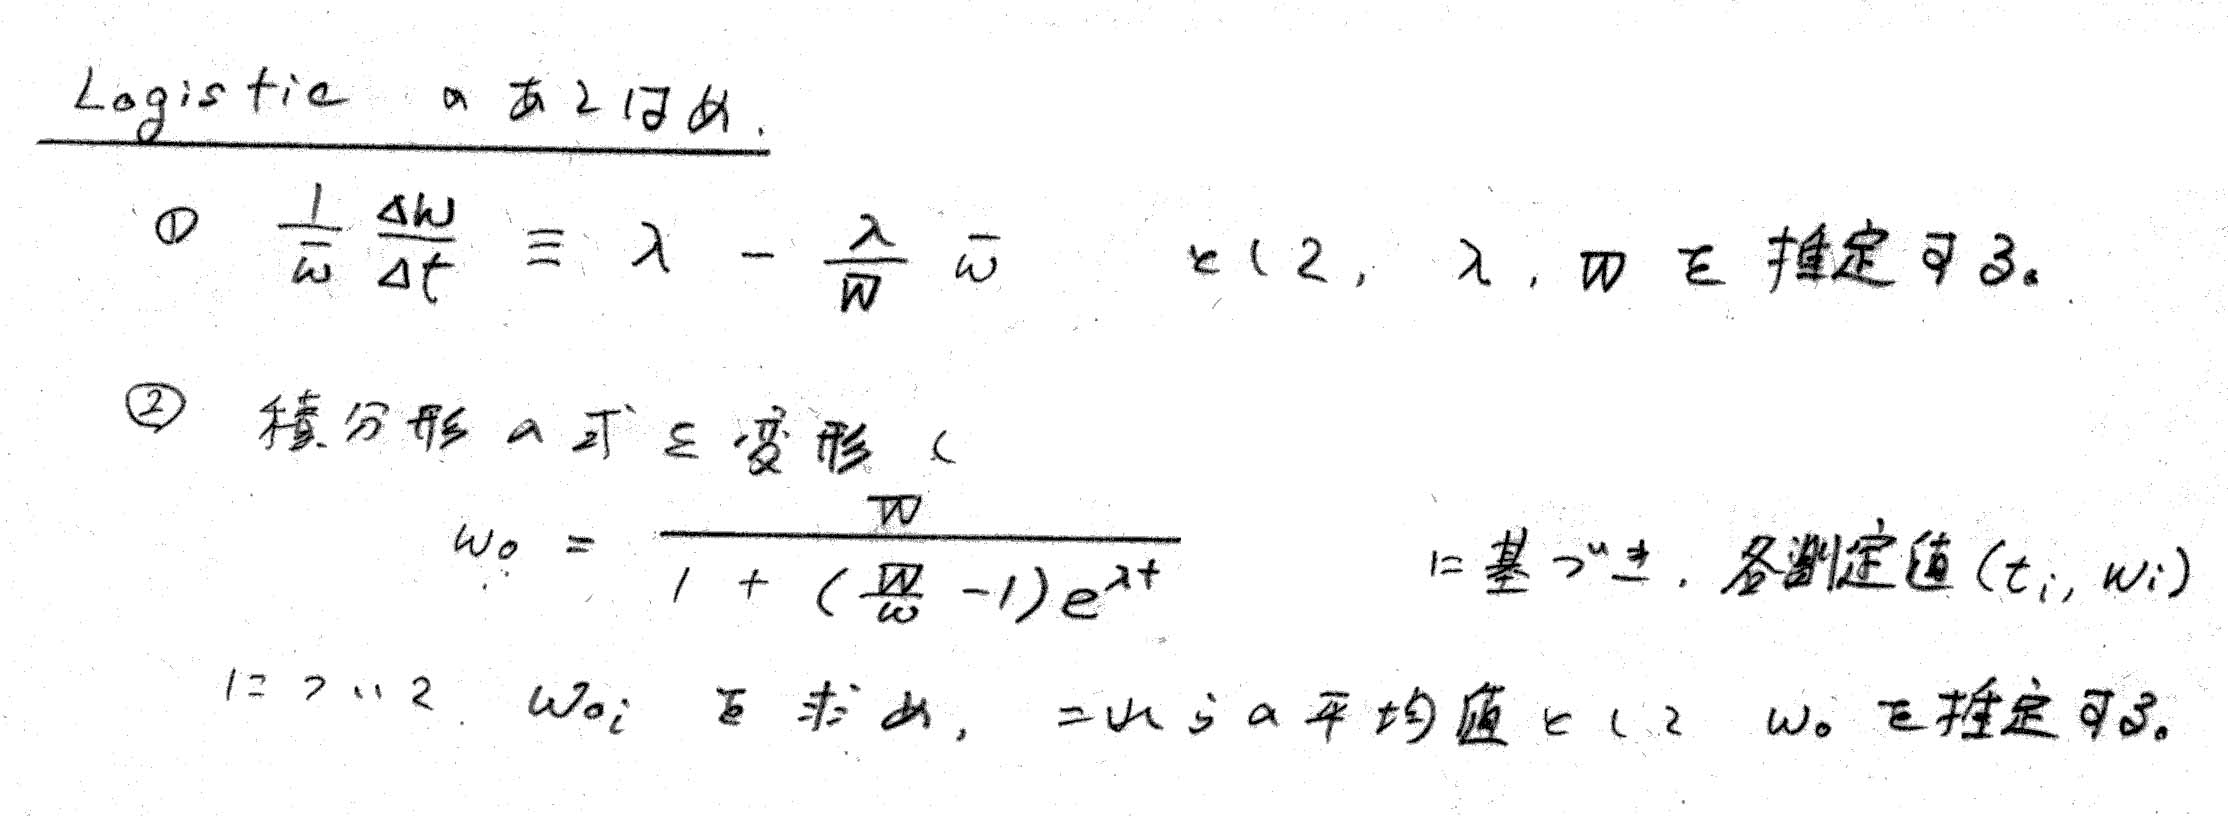 Logistic のあてはめ.
① 1/w̄ Δw/Δt ≡ λ - λ/W w̄ として, λ, W を推定する。
② 積分形の式を変形し
w₀ = W / (1 + (W/w - 1)e^{λt}) に基づき, 各測定値(tᵢ, wᵢ)
について. w₀ᵢ を求め, これらの平均値として w₀ を推定する。